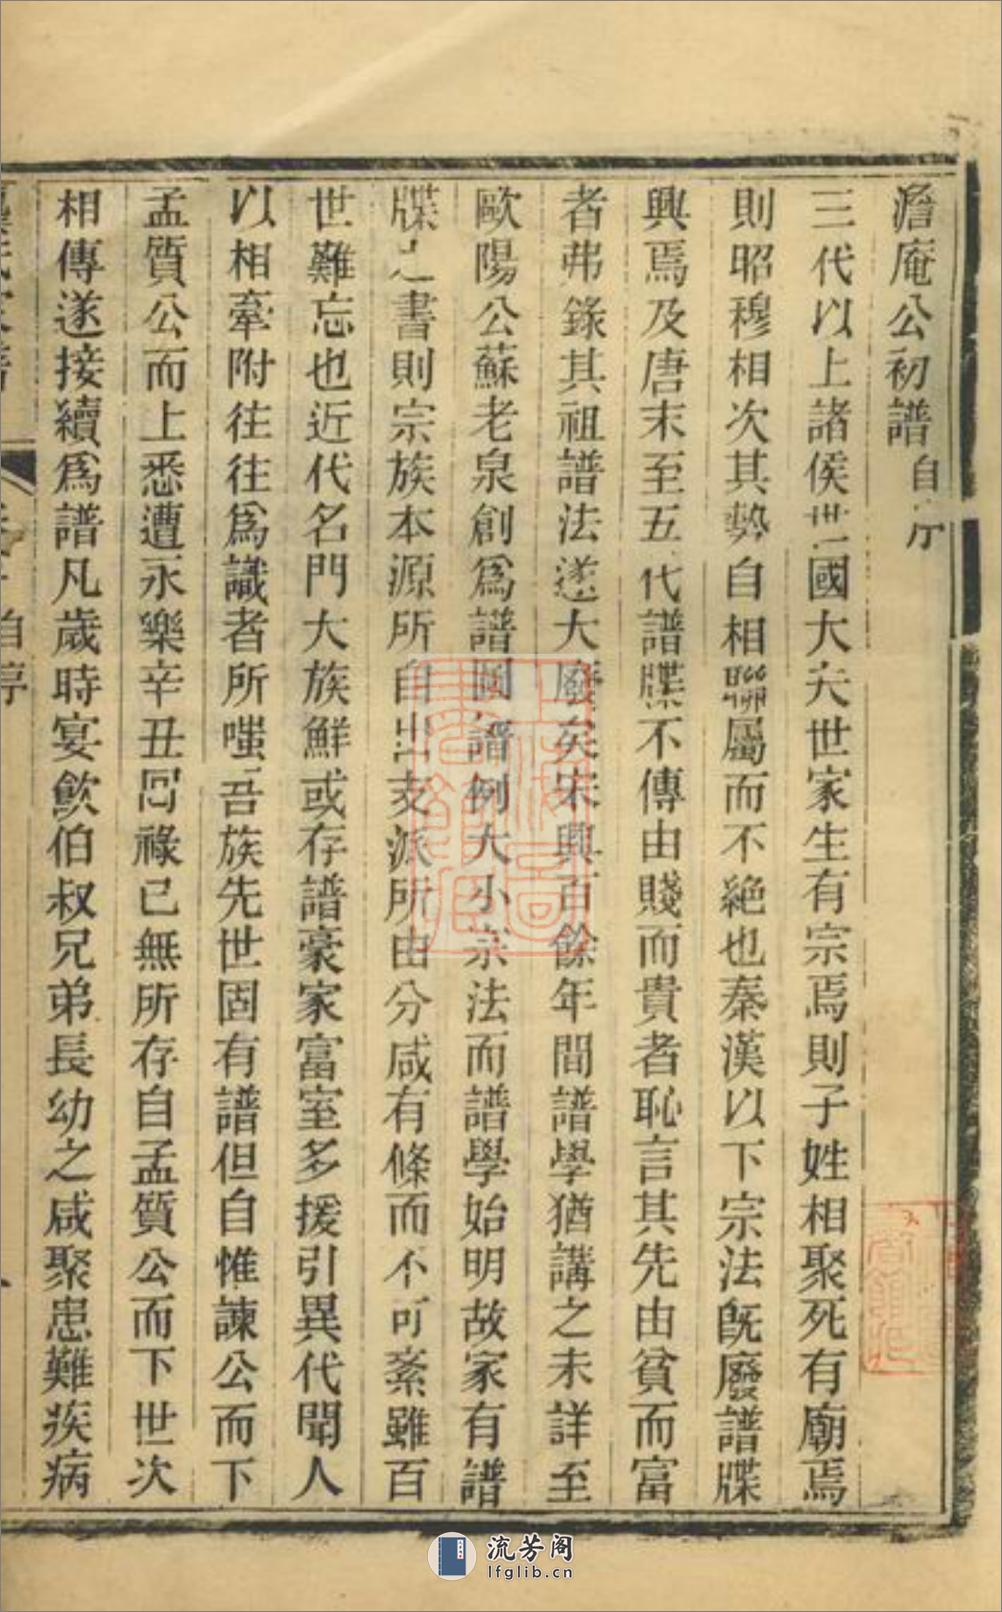 澹庵公初譜自序
三代以上諸侯世國大夫世家生有宗焉則子姓相聚死有廟焉
則昭穆相次其勢自相聯屬而不絕也秦漢以下宗法旣廢譜牒
興焉及唐末至五代譜牒不傳由賤而貴者恥言其先由貧而富
者弗錄其祖譜法遂大廢矣宋興百餘年間譜學猶講之未詳至
歐陽公蘇老泉創爲譜圖譜例大小宗法而譜學始明故家有譜
牒之書則宗族本源所自出支派所由分咸有條而不可紊雖百
世難忘也近代名門大族鮮或存譜豪家富室多援引異代聞人
以相牽附往往爲識者所嗤吾族先世固有譜但自惟諫公而下
孟質公而上悉遭永樂辛丑回祿已無所存自孟質公而下世次
相傳遂接續爲譜凡歲時宴飲伯叔兄弟長幼之咸聚患難疾病
自序
流芳阁
lfglib.cn